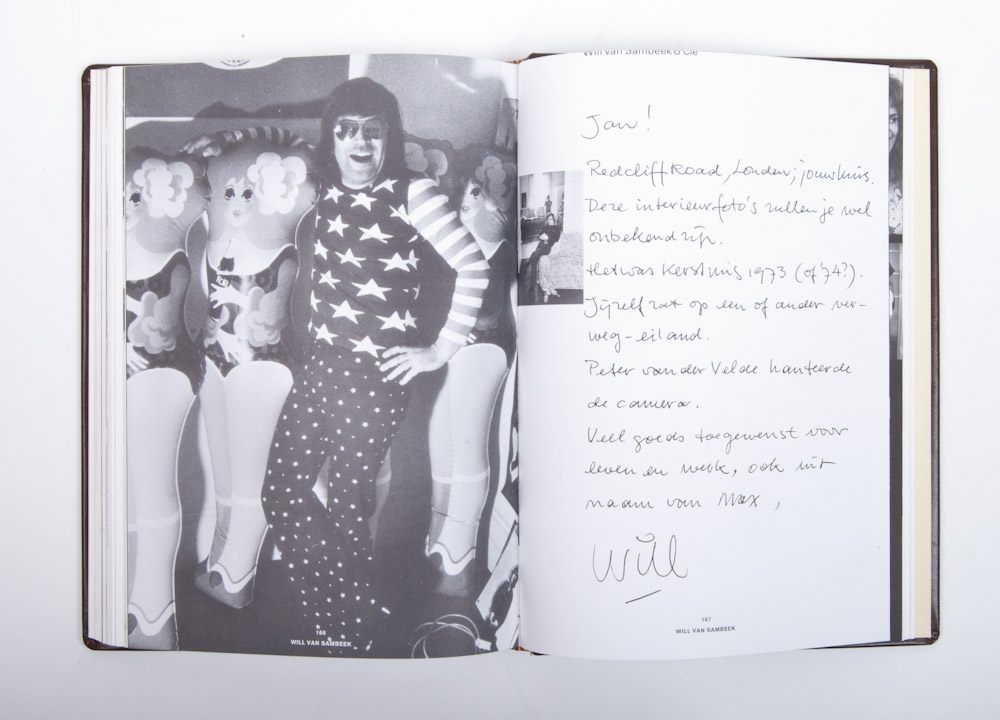 166
WILL VAN SAMBEEK
Will van Sambeek & Cie
Jan!
Redcliff Road, Londen; jouw huis.
Deze interieurfoto's zullen je wel
onbekend zijn.
Het was Kerstmis 1973 (of '74?).
Jijzelf zat op een of ander ver-
weg-eiland.
Peter van der Velde hanteerde
de camera.
Veel goeds toegewenst voor
leven en werk, ook uit
naam van Max,
Will
167
WILL VAN SAMBEEK